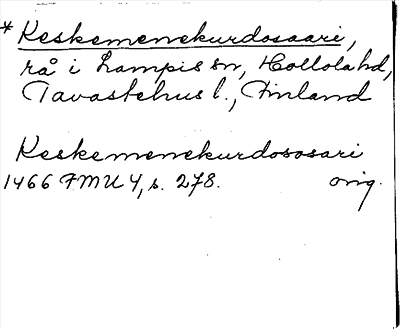 *Keskemenekurdosaari,
rå i Lampis sn, Hollola hd,
Tavastehus l., Finland
Keskemenekurdososari
1466 FMU 4, s. 278. orig.